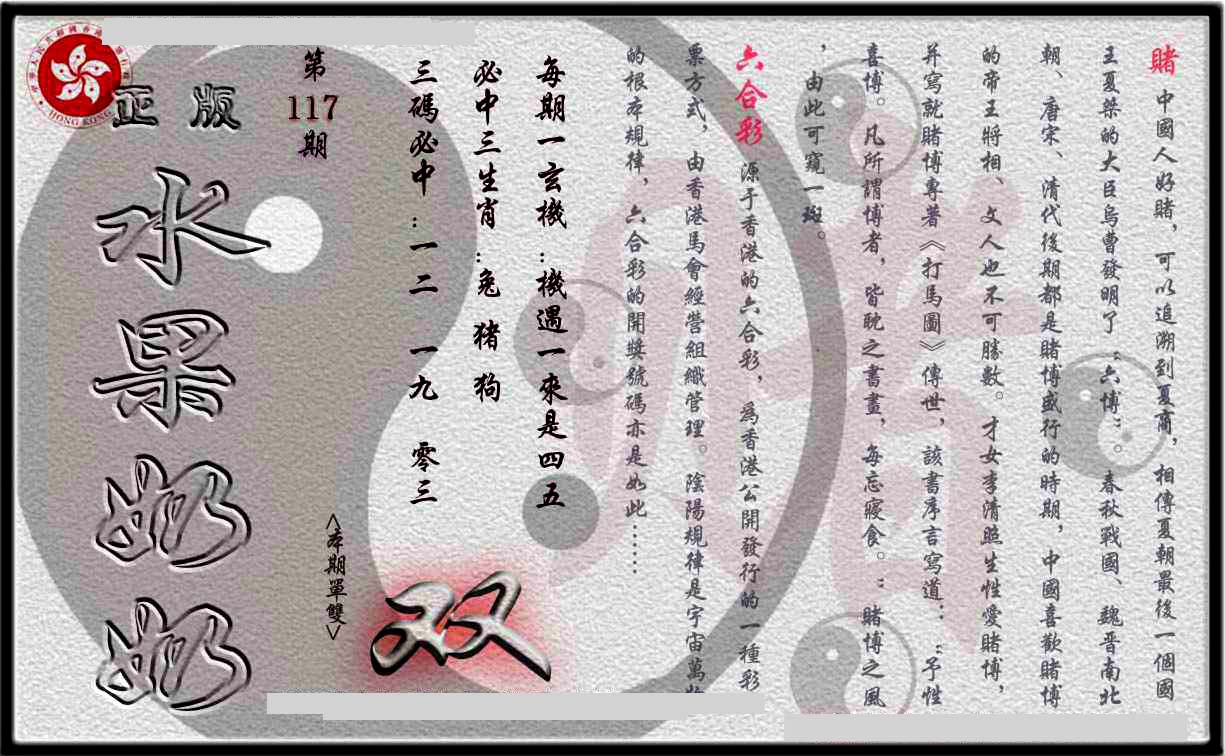 賭 中國人好賭，可以追溯到夏商，相傳夏朝最後一個國
王夏桀的大臣烏曹發明了“六博”。春秋戰國、魏晋南北
朝、唐宋、清代後期都是賭博盛行的時期，中國喜歡賭博
的帝王將相、文人也不可勝數。才女李清照生性愛賭博，
并寫就賭博專著《打馬圖》傳世，該書序言寫道：“予性
喜博。凡所謂博者，皆耽之晝夜，每忘寢食。”賭博之風
，由此可窺一斑。
六合彩 源于香港的六合彩，爲香港公開發行的一種彩
票方式，由香港馬會經營組織管理。陰陽規律是宇宙萬物
的根本規律，六合彩的開獎號碼亦是如此……
每期一玄機：機遇一來是四五
必中三生肖：兔 猪 狗
三碼必中：一二 一九 零三
第
117
期
<本期單雙>
双
正版
水果奶奶
HONG KONG